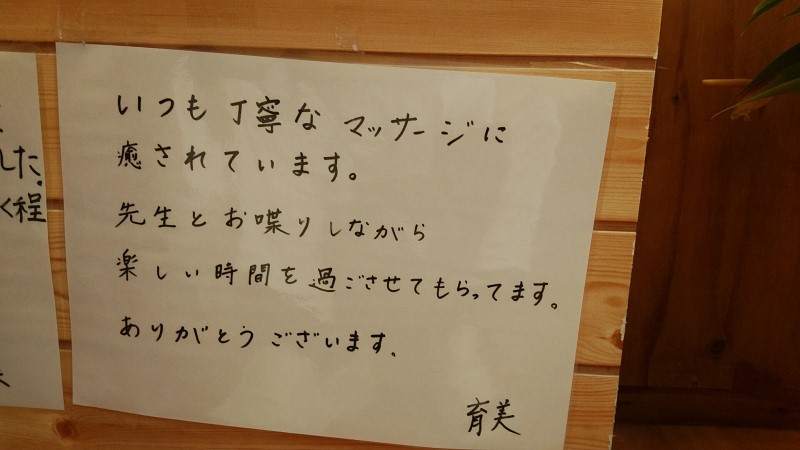 いつも丁寧なマッサージに
癒されています。
先生とお喋りしながら
楽しい時間を過ごさせてもらってます。
ありがとうございます.
育美
した.
く程